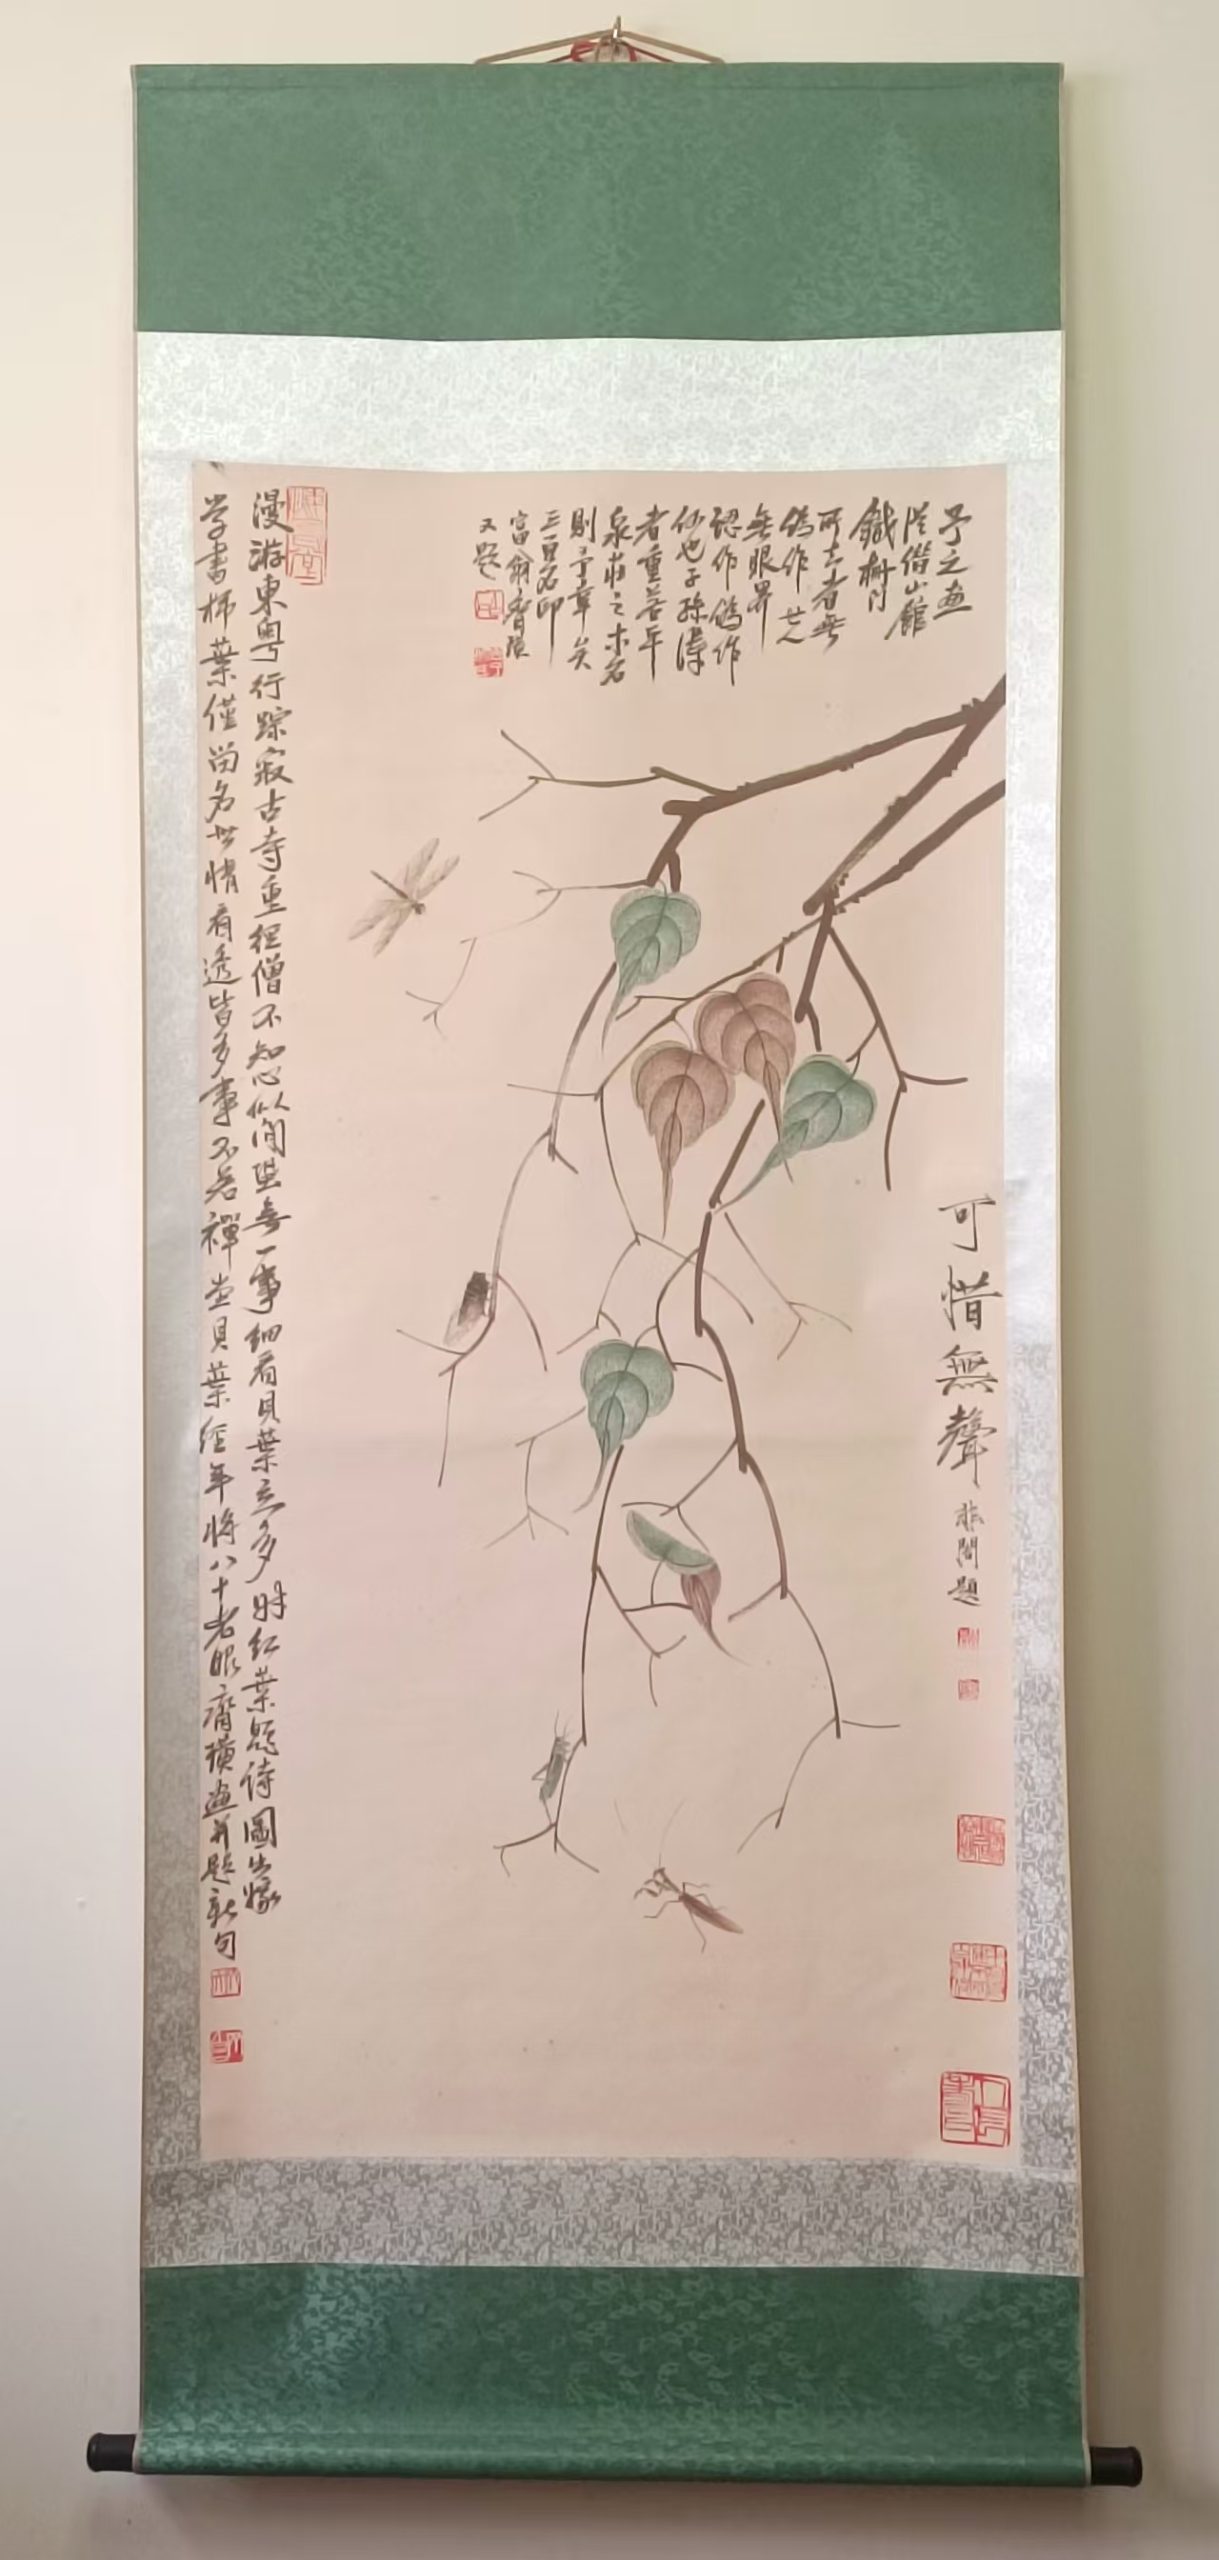 予之畫
從借山館
鐵柵門
所去者無
偽作世人
無眼界
認作偽作
何也子孫得
者重若平
泉莊之木石
則予幸矣
三百石印
富翁齊璜
又題
可惜無聲
非闇題
漫游東粤行踪寂古寺重徑僧不知心似閒蛩無一事細看貝葉立多時紅葉題詩圖出嫁
學書柿葉僅留名世情看透皆多事不若禪堂貝葉經年將八十老眼齊璜畫并題新句